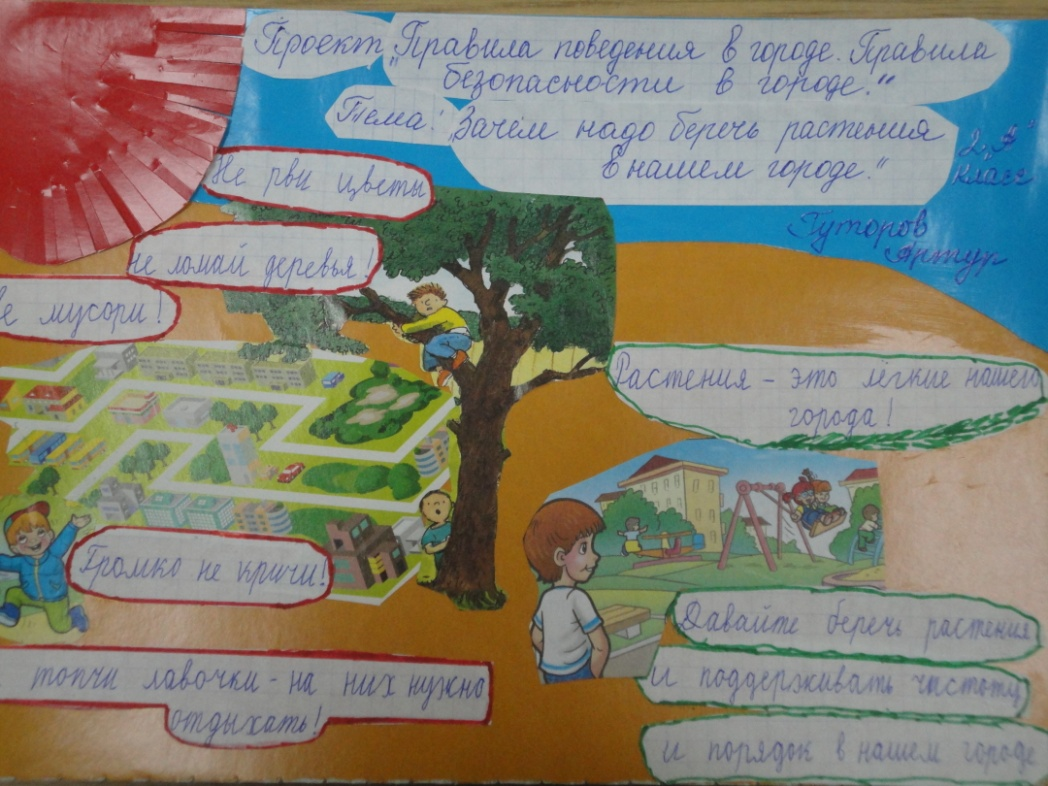 Проект „Правила поведения в городе. Правила
безопасности в городе."
Тема: „Зачем надо беречь растения
в нашем городе."
2 „А"
класс
Гуторов
Артур
Не рви цветы
не ломай деревья!
мусори!
Растения - это лёгкие нашего
города!
Громко не кричи!
топчи лавочки - на них нужно
отдыхать!
Давайте беречь растения
и поддерживать чистоту
и порядок в нашем городе